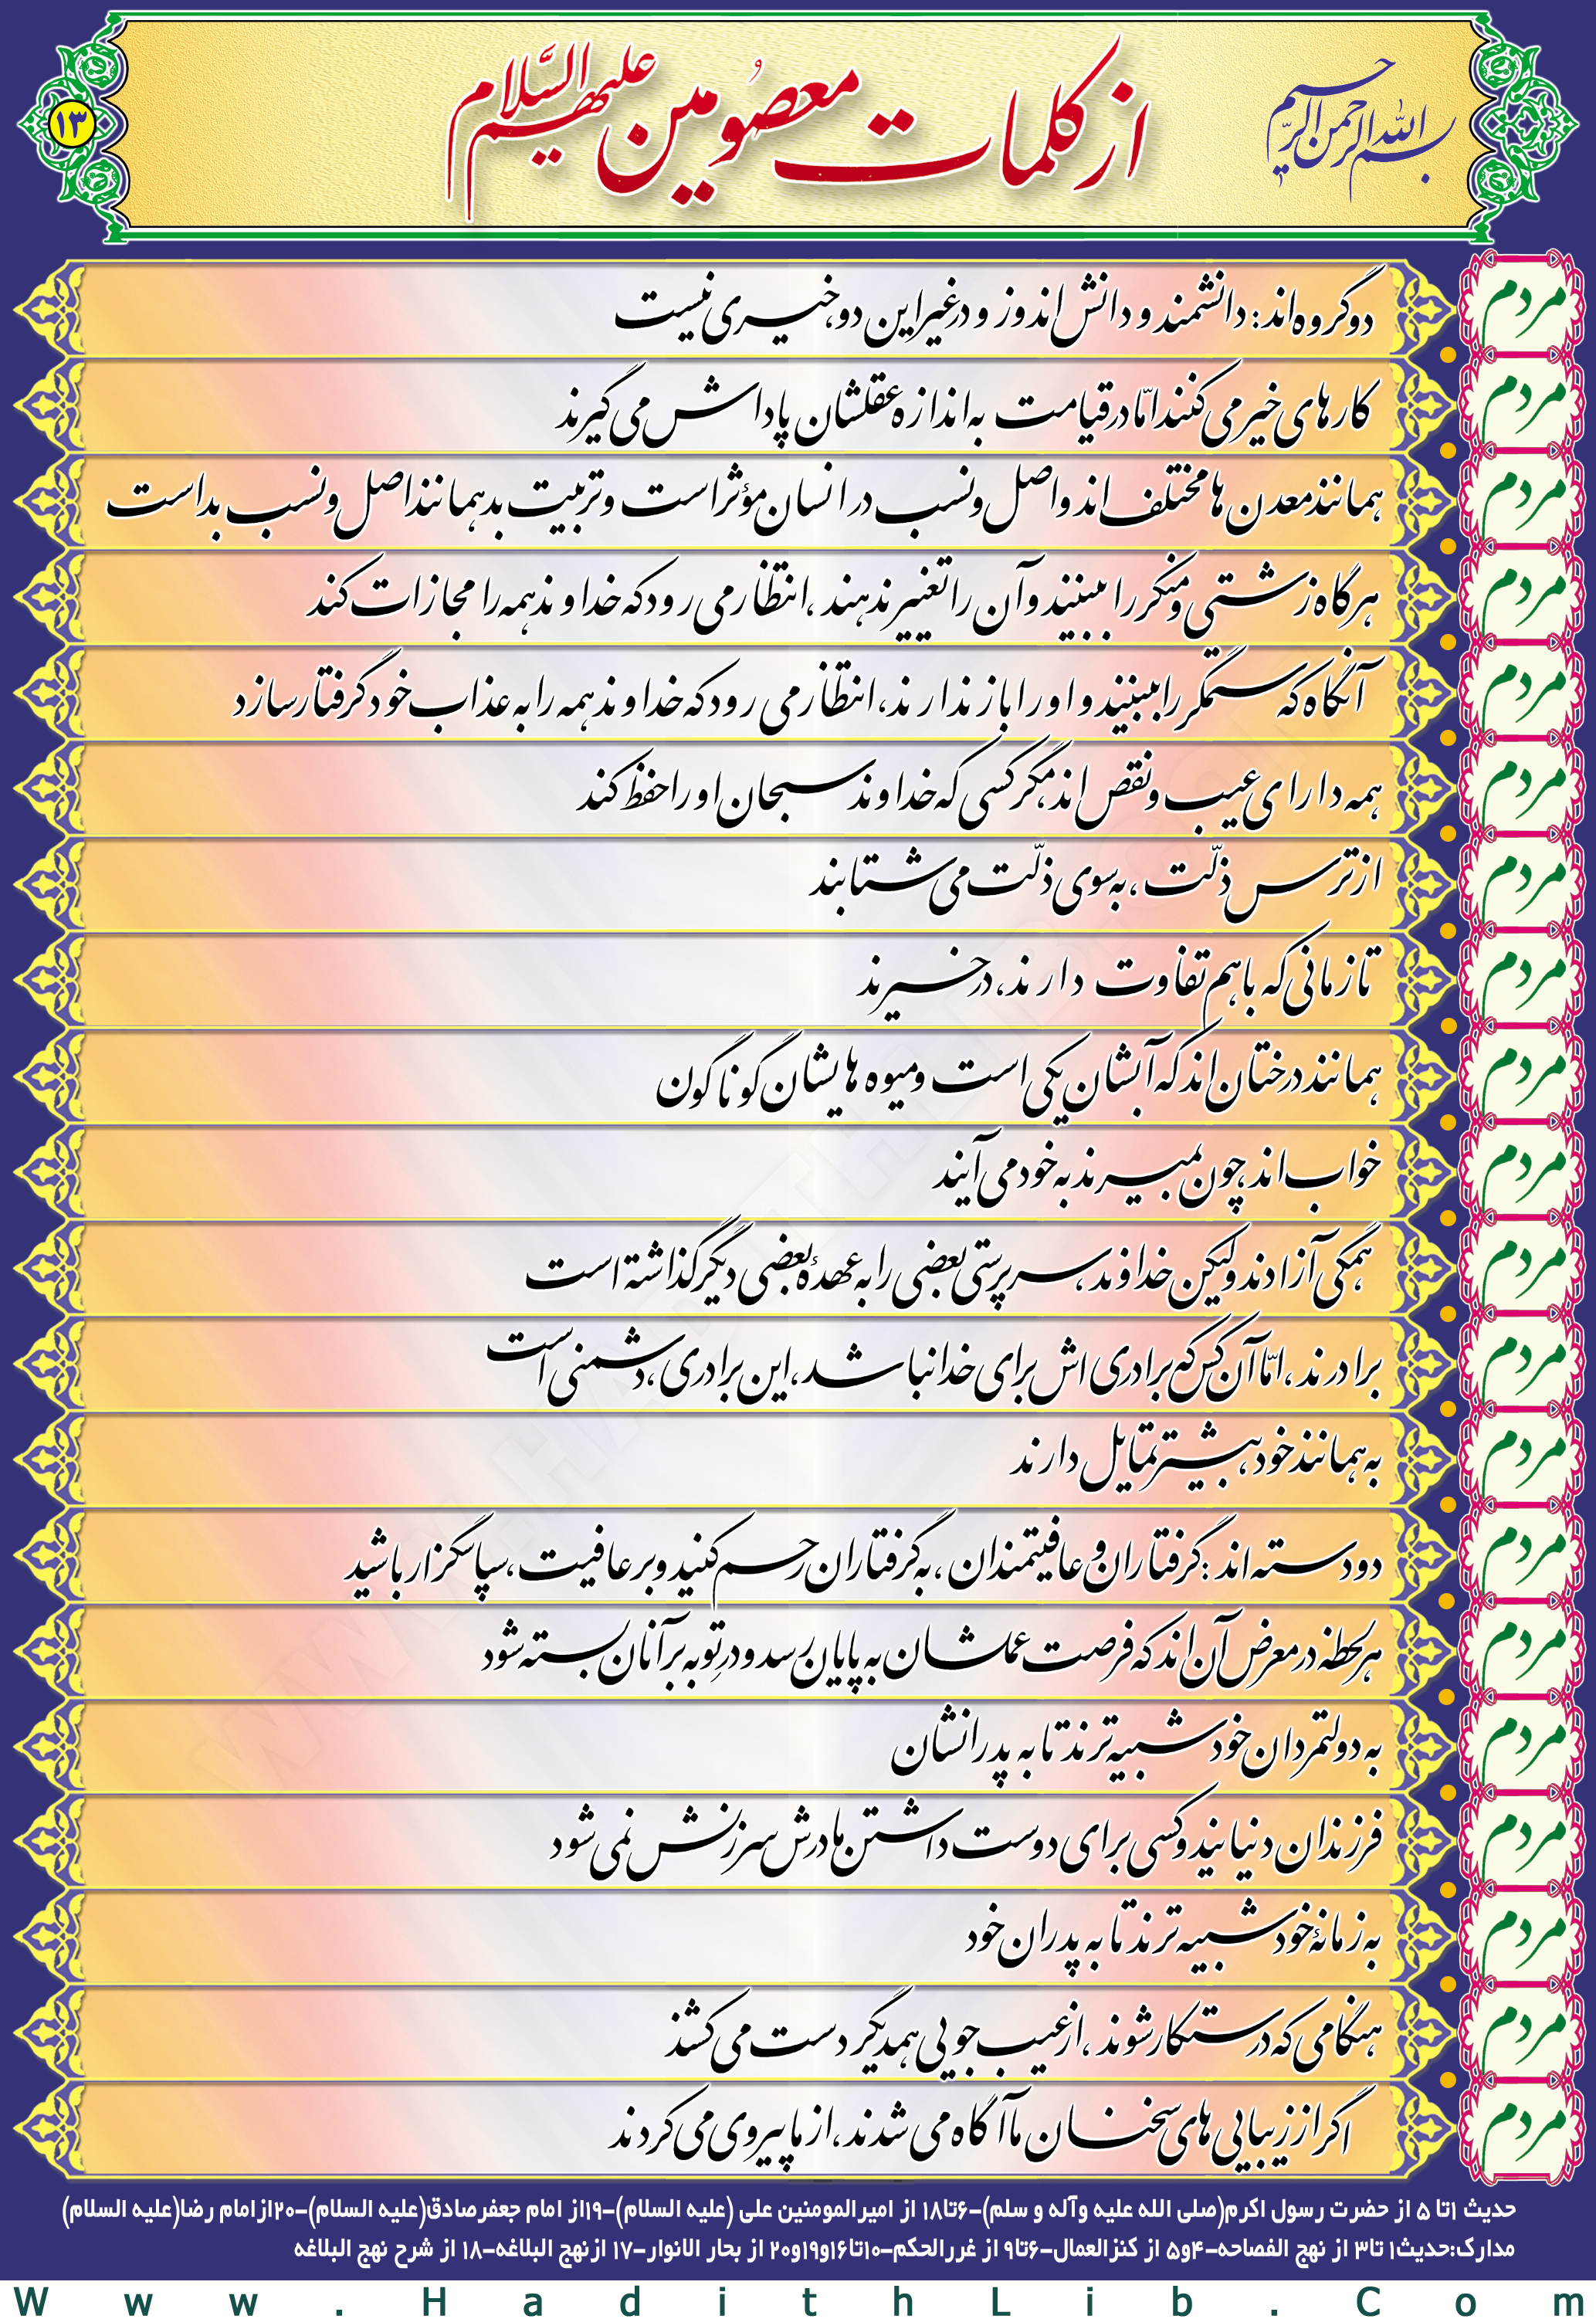 بسم الله الرحمن الرحیم
از کلمات معصومین علیهم السّلام
۱۳
مردم دو گروه اند: دانشمند و دانش اندوز و در غیر این دو، خیری نیست
مردم کارهای خیر می کنند امّا در قیامت به اندازه عقلشان پاداش می گیرند
مردم همانند معدن ها مختلف اند و اصل و نسب در انسان مؤثر است و تربیت بد همانند اصل و نسب بد است
مردم هرگاه زشتی و منکر را ببینند و آن را تغییر ندهند، انتظار می رود که خداوند همه را مجازات کند
مردم آنگاه که ستمگر را ببینند و او را باز ندارند، انتظار می رود که خداوند همه را به عذاب خود گرفتار سازد
مردم همه دارای عیب و نقص اند، مگر کسی که خداوند سبحان او را حفظ کند
مردم از ترس ذلّت، به سوی ذلّت می شتابند
مردم تا زمانی که با هم تفاوت دارند، در خیرند
مردم همانند درختان اند که آبشان یکی است و میوه هایشان گوناگون
مردم خواب اند، چون بمیرند به خود می آیند
مردم همگی آزادند ولیکن خداوند، سرپرستی بعضی را به عهدۀ بعضی دیگر گذاشته است
مردم برادرند، امّا آن کس که برادری اش برای خدا نباشد، این برادری، دشمنی است
مردم به همانند خود، بیشتر تمایل دارند
مردم دو دسته اند: گرفتاران و عافیتمندان، به گرفتاران رحم کنید و بر عافیت، سپاسگزار باشید
مردم هر لحظه در معرض آن اند که فرصت عملشان به پایان رسد و درِ توبه بر آنان بسته شود
مردم به دولتمردان خود شبیه ترند تا به پدرانشان
مردم فرزندان دنیایند و کسی برای دوست داشتن مادرش سرزنش نمی شود
مردم به زمانۀ خود شبیه ترند تا به پدران خود
مردم هنگامی که درستکار شوند، از عیب جویی همدیگر دست می کشند
مردم اگر از زیبایی های سخنان ما آگاه می شدند، از ما پیروی می کردند
حدیث ۱تا ۵ از حضرت رسول اکرم(صلی الله علیه وآله و سلم)-۶تا۱۸ از امیرالمومنین علی (علیه السلام)-۱۹از امام جعفرصادق(علیه السلام)-۲۰ازامام رضا(علیه السلام)
مدارک:حدیث۱ تا۳ از نهج الفصاحه-۴و۵ از کنزالعمال-۶تا۹ از غررالحکم-۱۰تا۱۶و۱۹و۲۰ از بحار الانوار-۱۷ ازنهج البلاغه-۱۸ از شرح نهج البلاغه
Www.HadithLib.Com